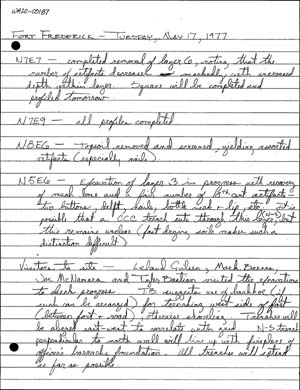 WA20-00187
FORT FREDERICK - TUESDAY, MAY 17, 1977
N7E7 - completed removal of layer 6, noting that the
number of artifacts decreases markedly with increased
depth within layer. Square will be completed and
profiled tomorrow
N7E9 - all profiles completed
N8E6 - Topsoil removed and screened, yielding assorted
artifacts (especially nails).
N5E6 - Excavation of layer 3 in progress with recovery
of much bone and a fair number of 18th cent artifacts -
two buttons, delft, nails, bottle neck + lip, etc. It is
possible that a CCC trench cuts through this layer, but
this remains unclear (fast drying soils make such a
distinction difficult)
Visitors to site - Leland Gilsen, Mack Barnes,
Joe McNamara, and Tyler Bastian visited the excavations
to check progress. TB suggests use of backhoe (if
such can be arranged) for trenching west side of fort
(between fort + road), otherwise shoveling. Trenches will
be aligned east-west to correlate with grid. N-S trench
perpendicular to north wall will line up with fireplace of
officer's barracks foundation. All trenches will extend
as far as possible